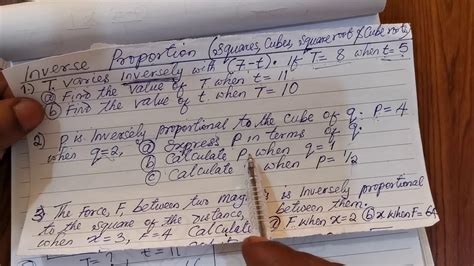 Inverse Proportion (Squares, Cubes, Square root & Cube root)
1) T varies Inversely with (7-t). If T= 8 when t= 5
ⓐ Find the value of T when t = 11
ⓑ Find the value of t when T= 10
2) P is Inversely proportional to the cube of q. P= 4
when q=2, ⓐ Express P in terms of q.
ⓑ Calculate P when q = 1
ⓒ Calculate when P= 1/2
3) The Force, F, between two is Inversely proportional
to the square of the distance, between them.
when x= 3, F=4 Calculate ⓐ F when x=2 ⓑ x when F=64